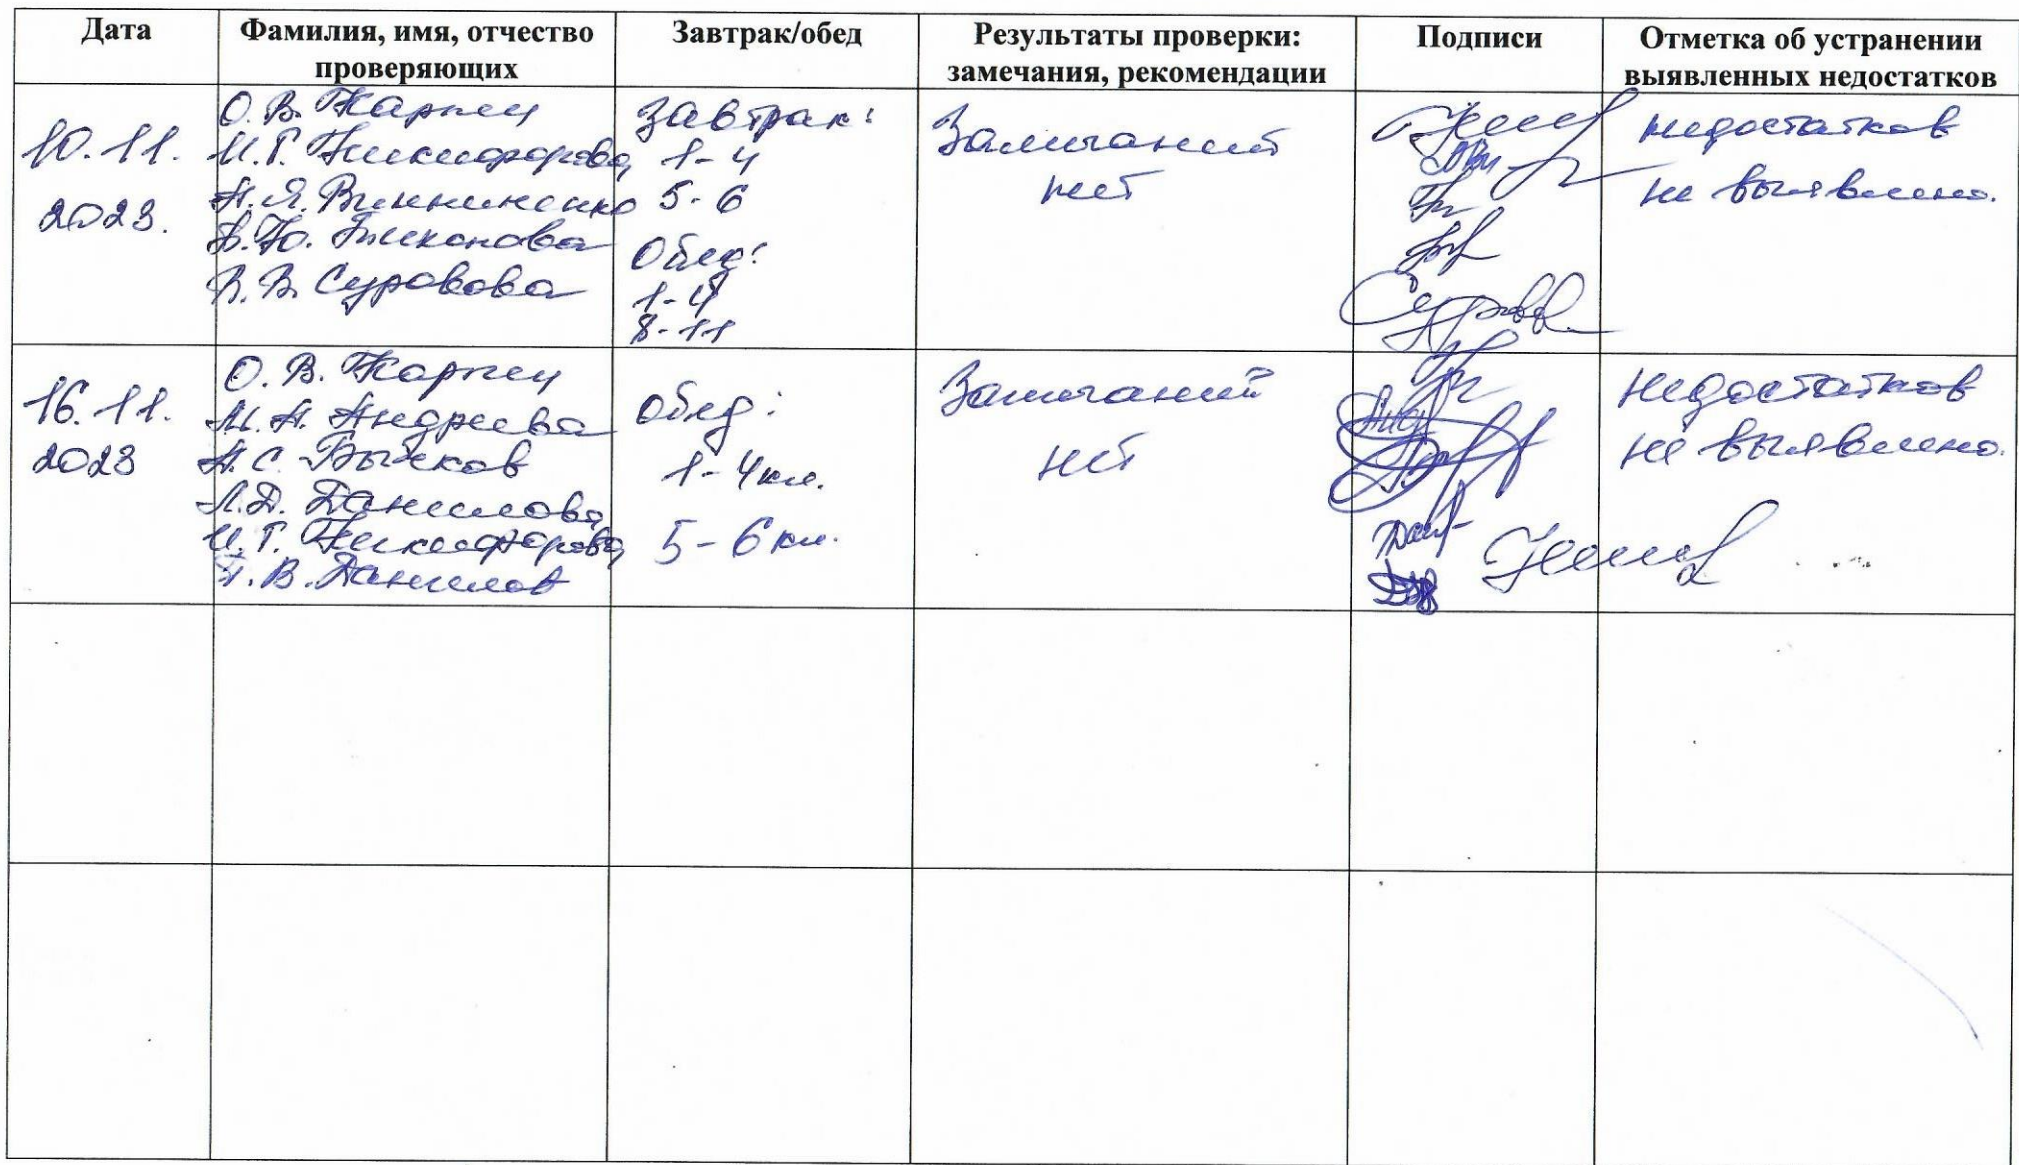 Дата
Фамилия, имя, отчество
проверяющих
Завтрак/обед
Результаты проверки:
замечания, рекомендации
Подписи
Отметка об устранении
выявленных недостатков
10.11.
2023.
О.В. Карпец
И.Г. Никифорова
А.Я. Винниченко
Ю. Тихонова
В.В. Суровова
Завтрак:
1-4
5-6
Обед:
1-4
8-11
Замечаний
нет
недостатков
не выявлено.
16.11.
2023
О.В. Карпец
М.А. Андреева
А.С. Бычков
Л.Д. Данилова
И.Г. Никифорова
В. Данилов
Обед:
1-4 кл.
5-6 кл.
Замечаний
нет
Недостатков
не выявлено.